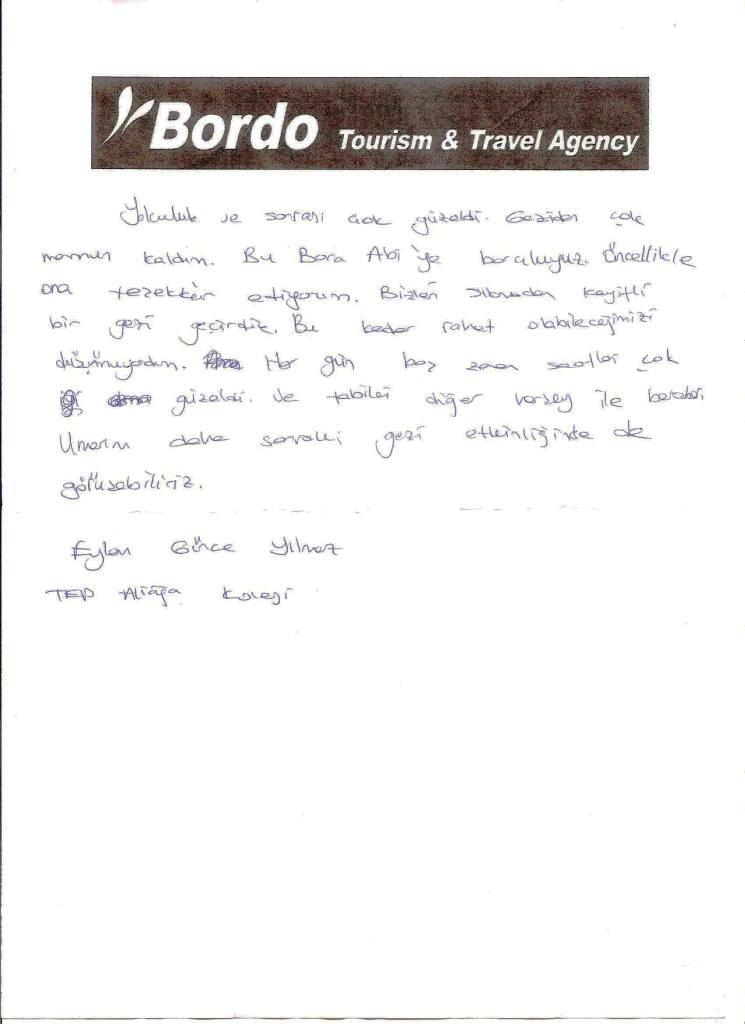 Bordo Tourism & Travel Agency
Yolculuk ve sonrası çok güzeldi. Geziden çok
memnun kaldım. Bu Bora Abi'ye borçluyuz. Öncellikle
ona teşekkür ediyorum. Bizleri sıkmadan keyifli
bir gezi geçirdik. Bu kadar rahat olabileceğimizi
düşünmüyordum. Her gün boş zaman saatleri çok
güzeldi. Ve tabiki diğer herşey ile beraber.
Umarım daha sonraki gezi etkinliğinde de
görüşebiliriz.
Eylem Gürce Yılmaz
TED Aliağa Koleji